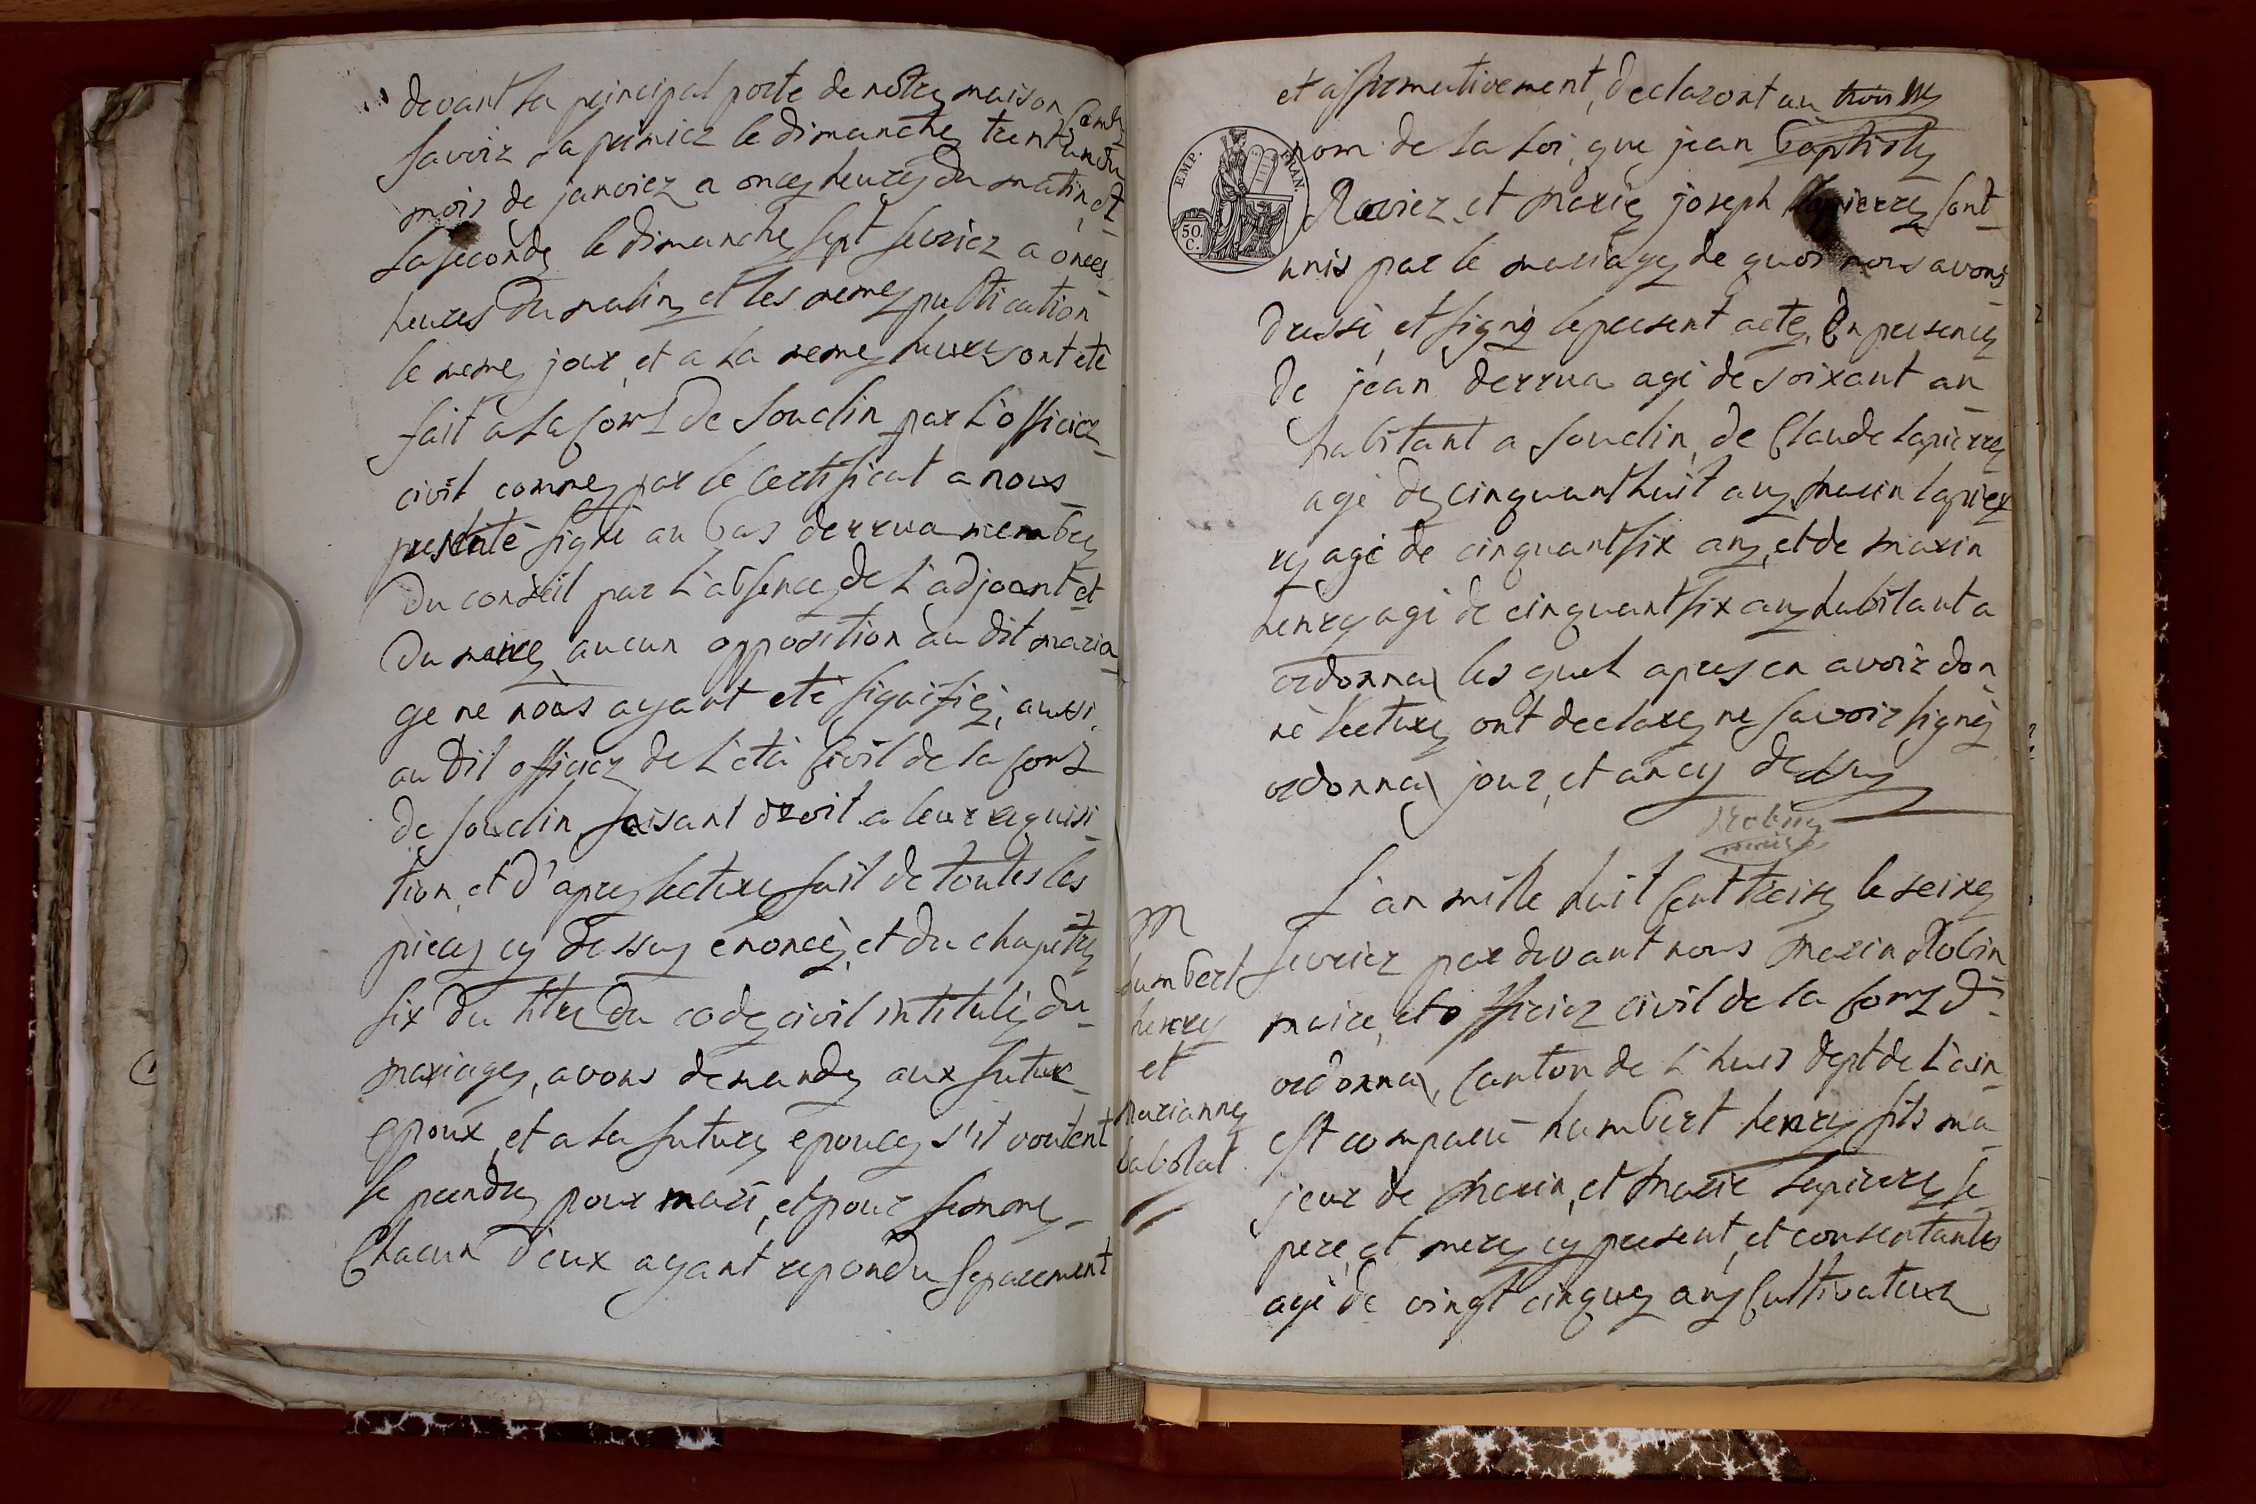 devant la principal porte de notre maison Comle
savoir la premier le dimanche trent un du
mois de janvier a once heures du matin, et
la seconde le dimanche sept fevrier a onces
heures du matin et les meme publication
le meme jour, et a la meme heure ont eté
fait a la Com de Souclin par L'officier
civil comme par le Certificat a nous
presenté signé au bas derrua membre
du conseil par L'absence de L'adjoint et
du maire aucun opposition au dit maria
ge ne nous ayant eté signifié, aussi
au dit officier de L'età Civil de la Com
de Souclin faisant droit a leur requisi
tion, et d'apres lecture fait de toutes les
pieces cy dessus enoncé, et du chapitre
six du titre du code civil intitulé du
mariage, avons demande aux future
epoux et a la future epouce s'il voulent
se prendre pour mari, et pour femme
Chacun d'eux ayant repondu separement
et affirmativement, declaront au
nom de la Loi, que jean baptiste
Ravier et Marie joseph lapierre sont
unis par le mariage de quoi nous avons
dressé et signé le present acte, En presence
de jean derrua agé de soixant an
habitant a Souclin, de Claude lapierre
agé de cinquant huit ans, marin lapier
re agé de cinquant six ans, et de marin
henry agé de cinquant six ans habitant a
ordonnax les quel apres en avoir don
né lecture ont declare ne savoir signé
ordonnax jour, et an cy dessus
Robin
maire
L'an mille huit Cent treise le seixe
fevrier par devant nous Marin Robin
maire, et officier civil de la Com d'
ordonnax, Canton de L'huis dept de L'ain
est comparu humbert henry fils ma
jeur de Marin, et Marie lapierre se
pere, et mere cy present, et consentantes
agé de vingt cinque ans Cultivateur
M
humbert
henry
et
Marianne
babolat
EMP. FRAN.
50 C.